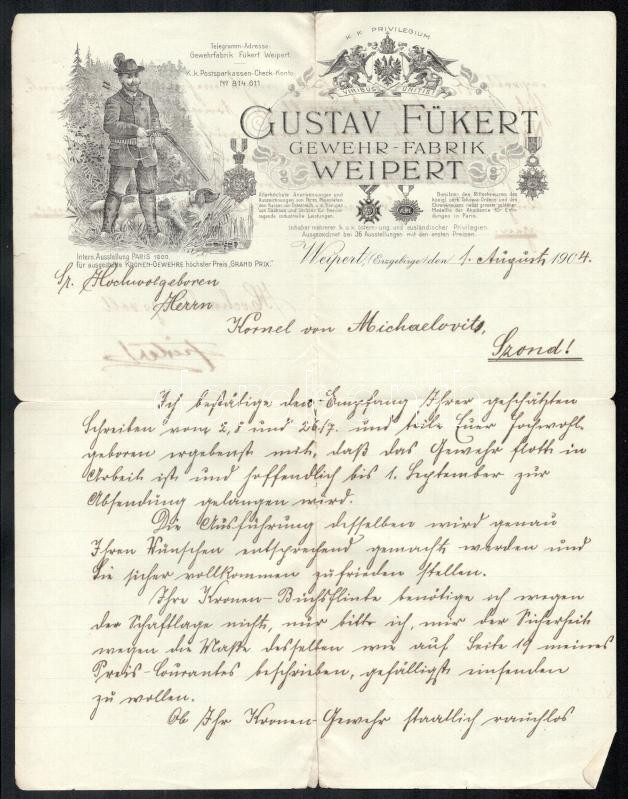 Telegramm-Adresse:
Gewehrfabrik Fükert Weipert.
K.k. Postsparkassen-Check-Konto
No 814.611
K. K. PRIVILEGIUM
VIRIBUS UNITIS
GUSTAV FÜKERT
GEWEHR-FABRIK
WEIPERT
Allerhöchste Anerkennungen und
Auszeichnungen von Ihren Majestäten
den Kaisern von Oesterreich u. d. Königen
von Sachsen und Serbien für hervor-
ragende industrielle Leistungen.
Besitzer des Ritterkreuzes des
königl. serb. Takowa-Ordens und des
Ehrenkreuzes nebst grosser goldener
Medaille der Akademie für Erfin-
dungen in Paris.
Inhaber mehrerer k. u. k. österr.-ung. und ausländischer Privilegien.
Ausgezeichnet bei 36 Ausstellungen mit den ersten Preisen.
Intern. Ausstellung PARIS 1900
für ausgestellte "KRONEN-GEWEHRE" höchster Preis "GRAND PRIX."
Weipert, (Erzgebirge) den 1. August 1904.
Sr. Hochwolgeboren
Herrn
Kornel von Michaelovits,
Szond!
Ich bestätige den Empfang Ihrer geschätzten
Schreiben vom 2, 8 und 26/7. und teile Euer Hochwohl-
geboren ergebenst mit, daß das Gewehr flott in
Arbeit ist und hoffendlich bis 1. September zur
Absendung gelangen wird.
Die Ausführung desselben wird genau
Ihren Wünschen entsprechend gemacht werden und
Sie sicher vollkommen zufrieden stellen.
Ihre Kronen-Büchsflinte benötige ich wegen
der Schaftlage nicht, nur bitte ich, mir der Sicherheit
wegen die Maße desselben wie auf Seite 19 meines
Preis-Courantes beschrieben, gefälligst einsenden
zu wollen.
Ob Ihr Kronen-Gewehr staatlich rauchlos